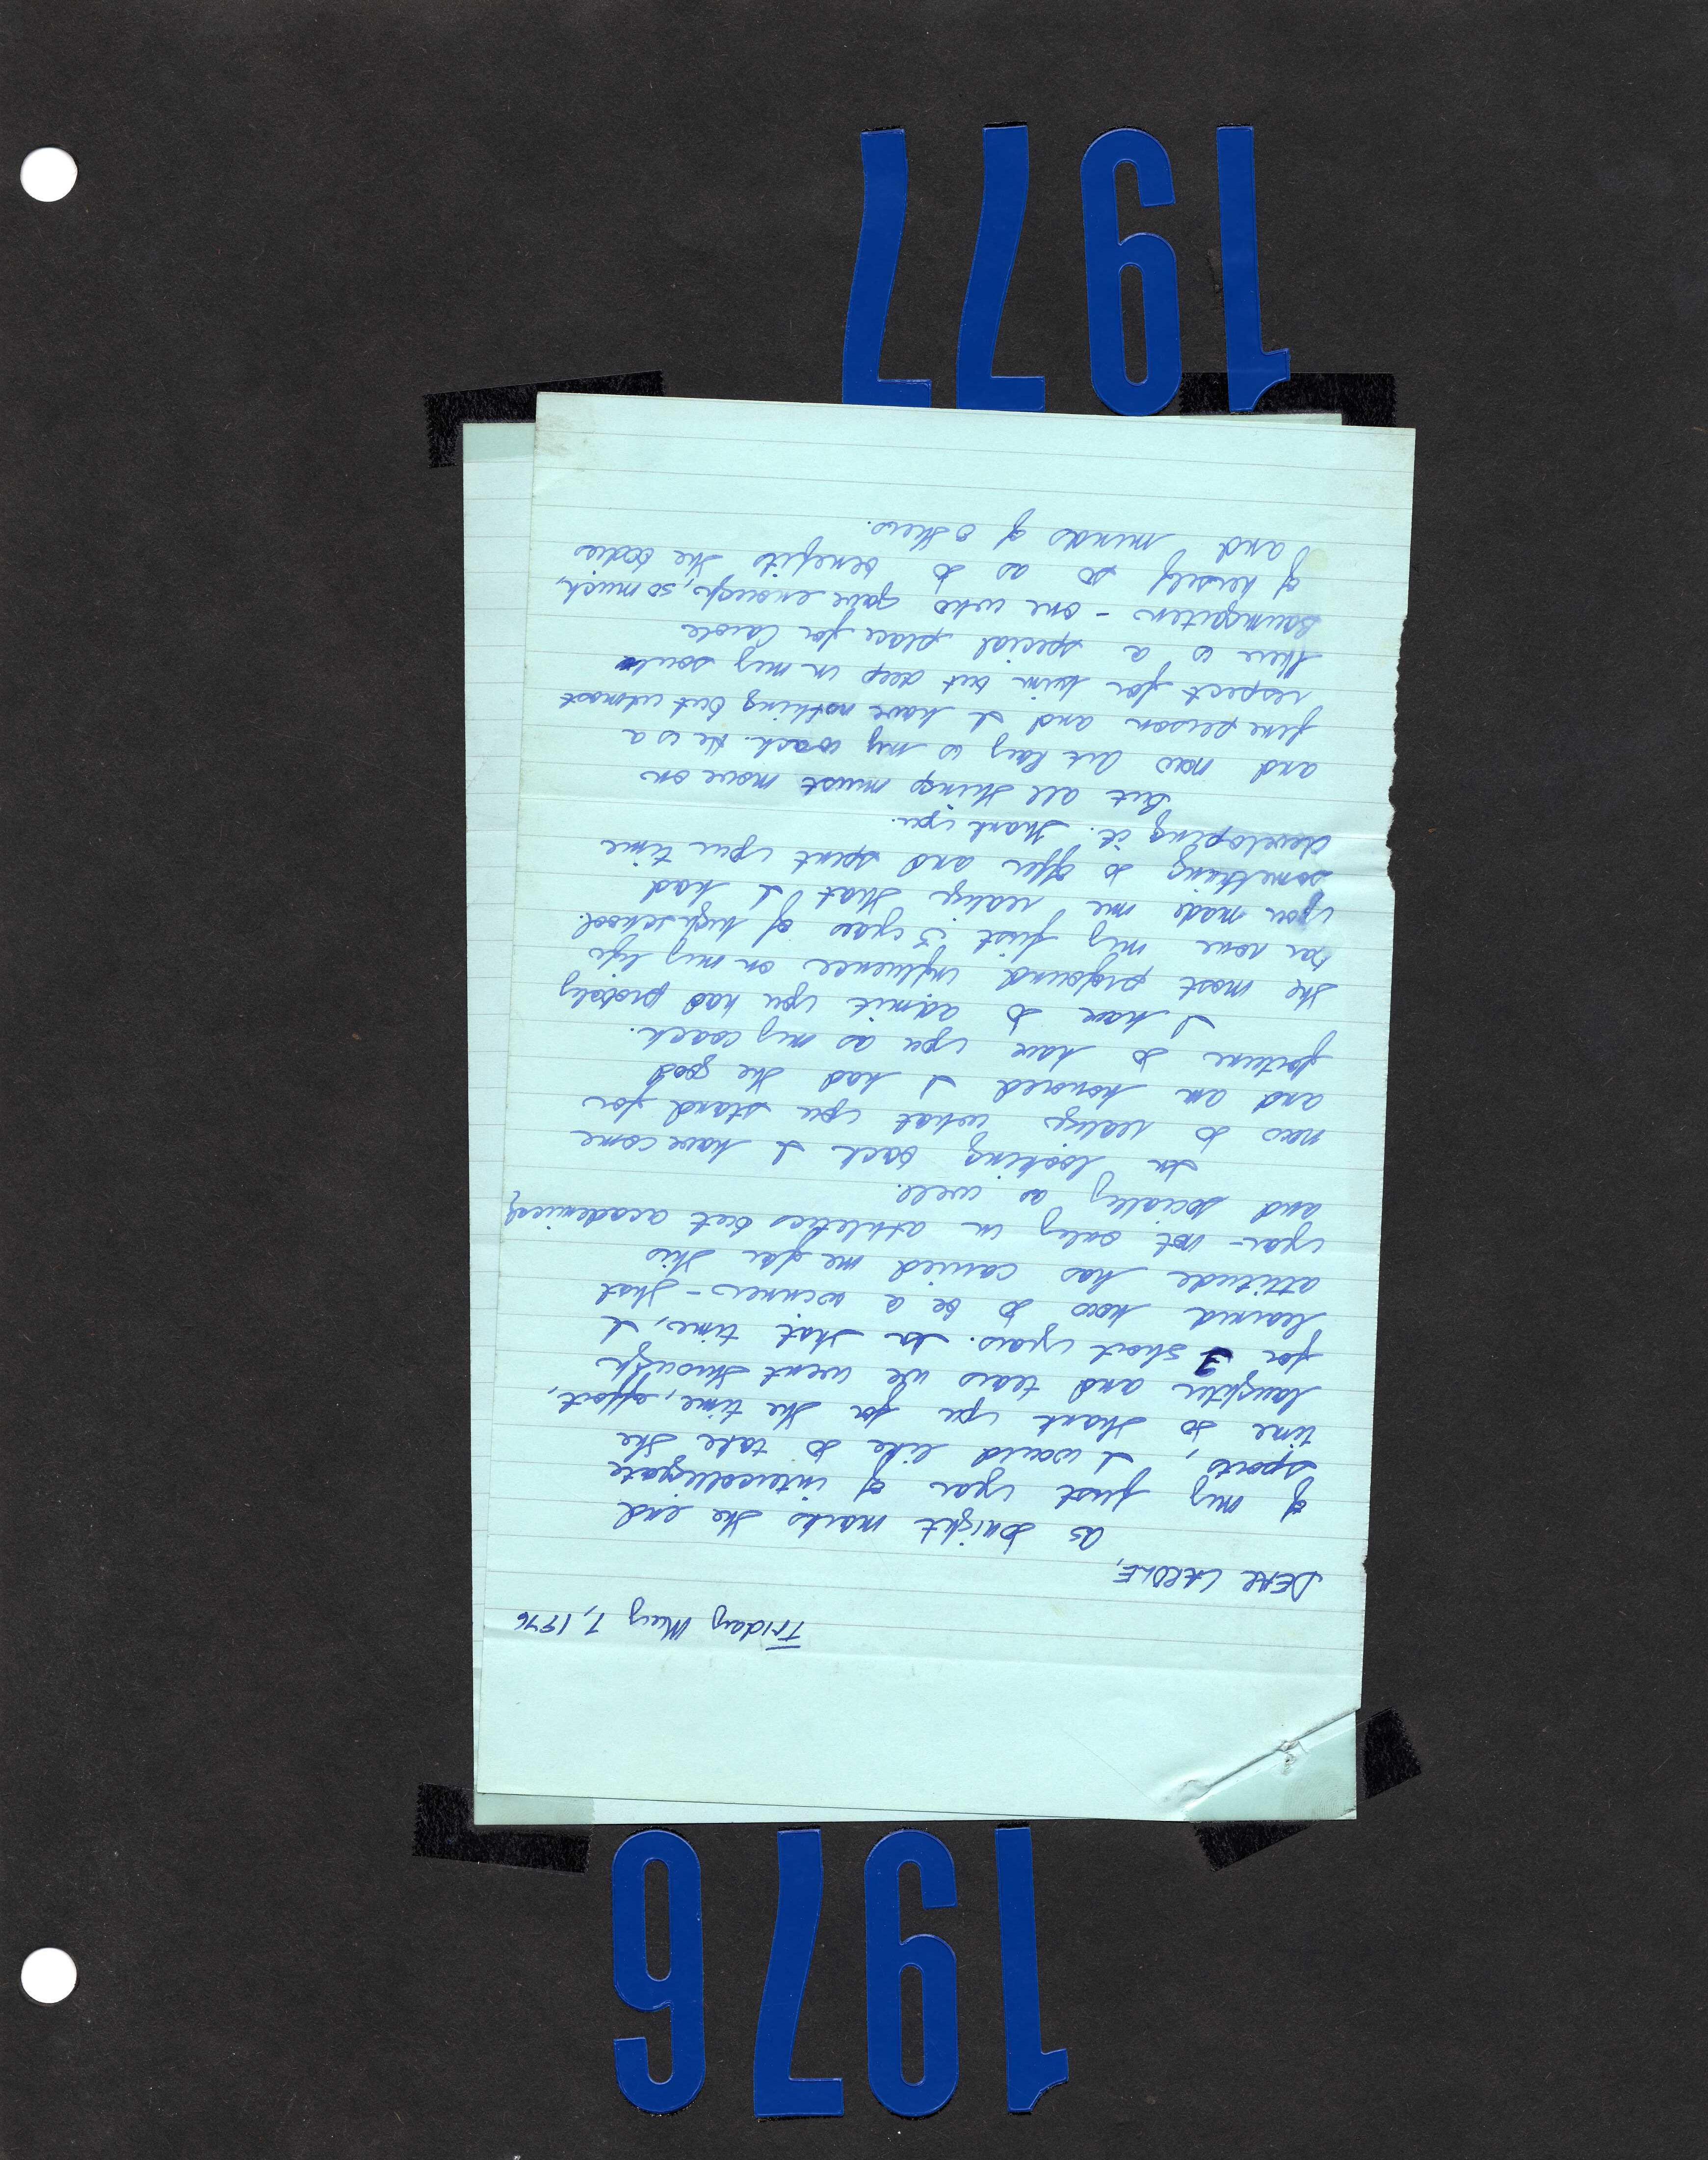 1976
Friday May 7, 1976
DEAR CAROLE,
As tonight marks the end
of my first year of intercollegiate
sports, I would like to take the
time to thank you for the time, effort,
laughter and tears we went through
for 3 short years. In that time, I
learned how to be a winner - that
attitude has carried me far this
year - not only in athletics but academically
and socially as well.
In looking back I have come
now to realize what you stand for
and am honored I had the good
fortune to have you as my coach.
I have to admit you had probably
the most profound influence on my life
bar none my first 3 years of high school.
You made me realize that I had
something to offer and spent your time
developing it. Thank you.
But all things must move on
and now Art Long is my coach. He is a
fine person and I have nothing but utmost
respect for him but deep in my soul
there is a special place for Carole
Baumgarten - one who gave enough, so much,
of herself so as to benefit the bodies
and minds of others.
1977